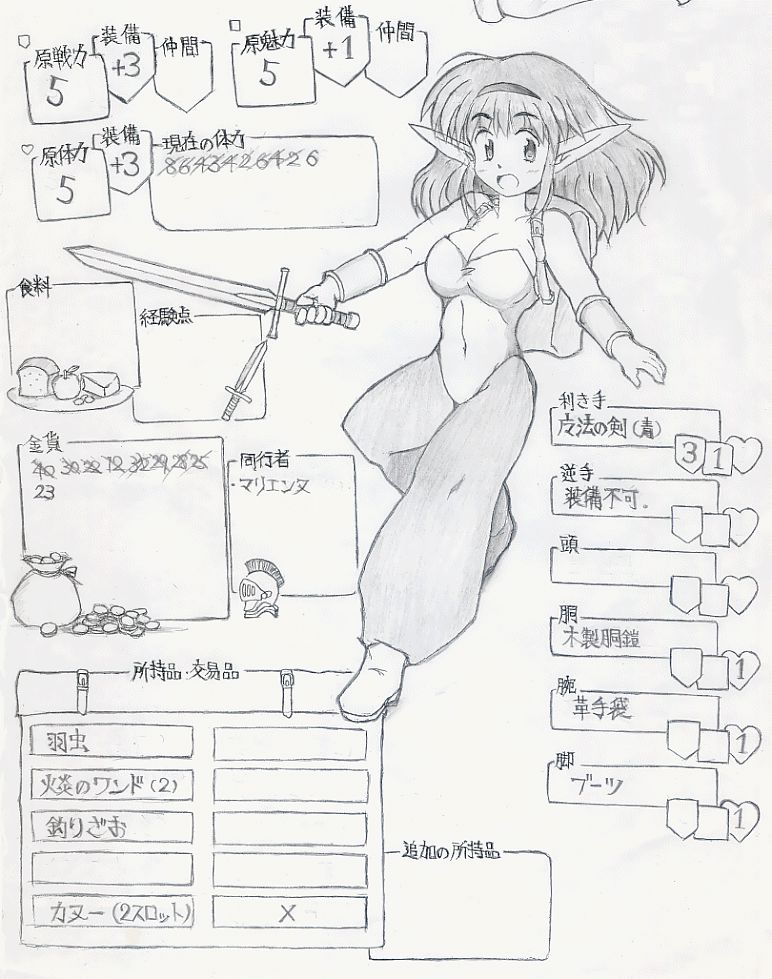 原戦力
5
装備
+3
仲間
原魅力
5
装備
+1
仲間
原体力
5
装備
+3
現在の体力
8 6 4 3 4 2 6 4 2 6
食料
経験点
金貨
40 30 22 12 32 29 28 25
23
同行者
・マリエンヌ
利き手
魔法の剣(青)
3 1
逆手
装備不可.
頭
胴
木製胴鎧
1
腕
革手袋
1
脚
ブーツ
1
所持品・交易品
羽虫
火炎のワンド(2)
釣りざお
カヌー(2スロット)
X
追加の所持品